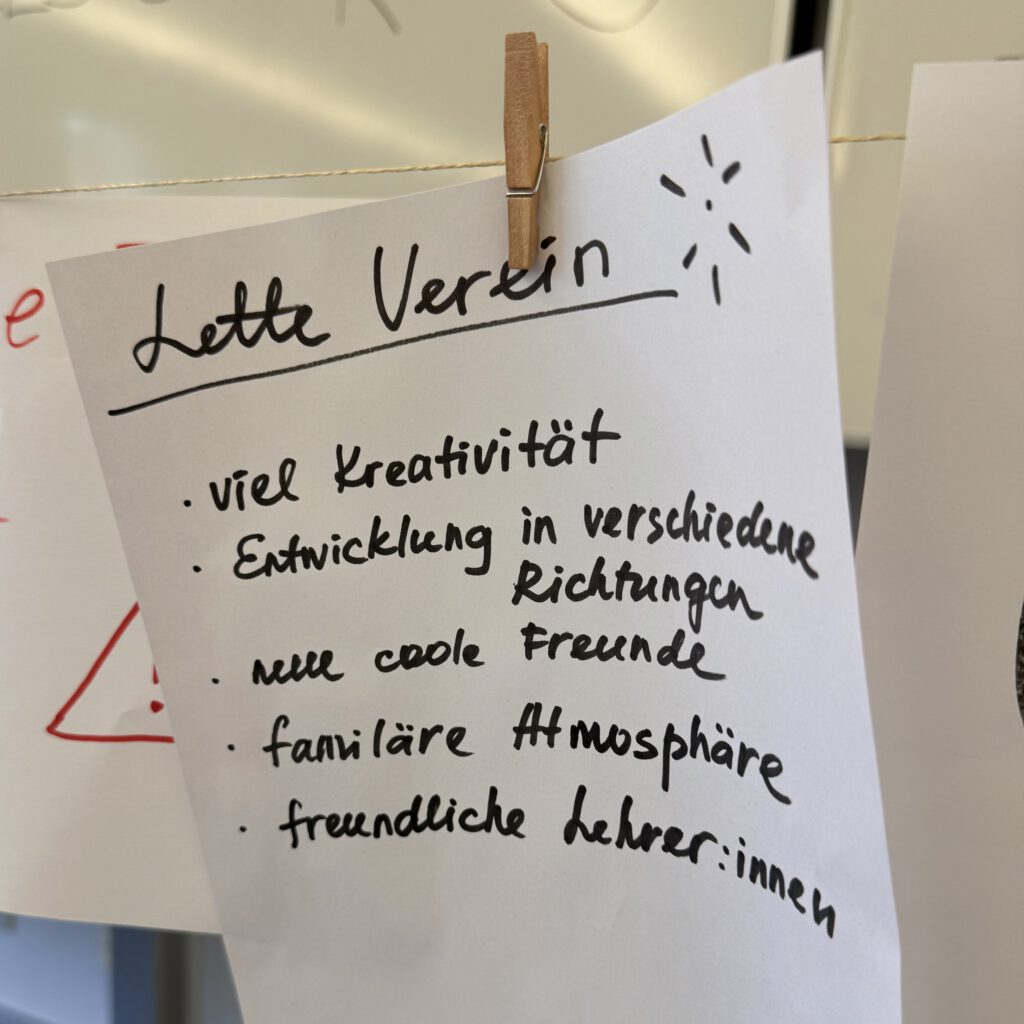 Lette Verein
· viel Kreativität
· Entwicklung in verschiedene
Richtungen
· neue coole Freunde
· familäre Atmosphäre
· freundliche Lehrer:innen
e
!